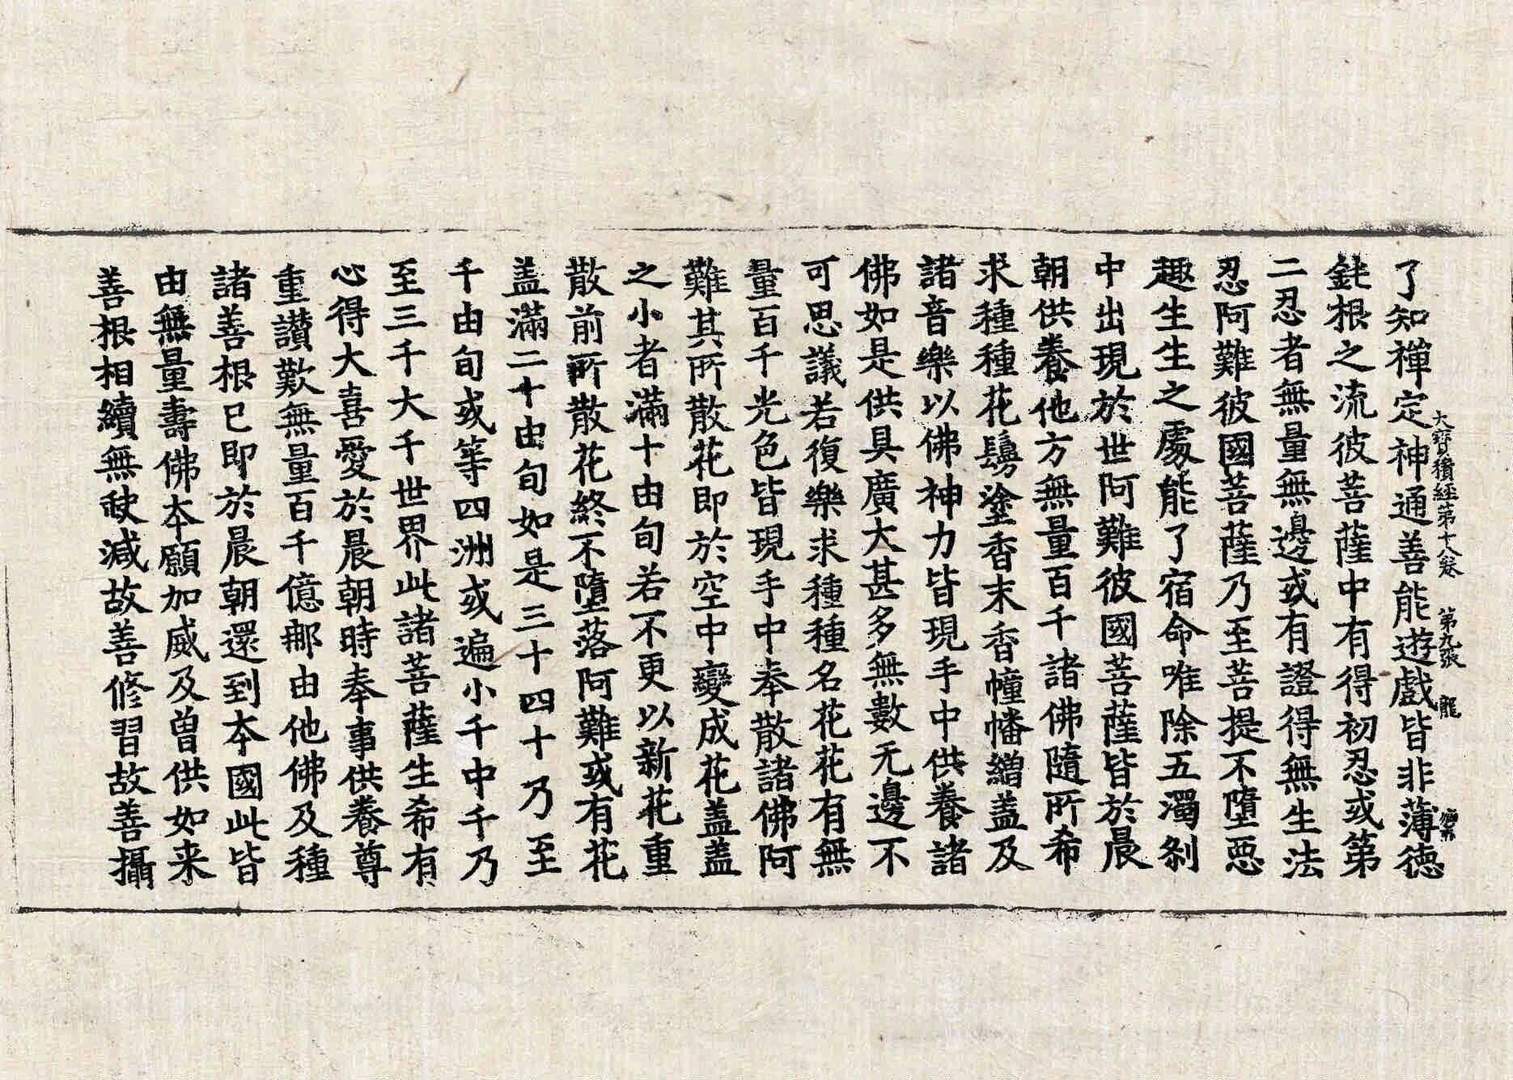 了知禪定神通善能遊戲皆非薄德
大寶積經第十八卷 第九張 龍
鈍根之流彼菩薩中有得初忍或第
二忍者無量無邊或有證得無生法
忍阿難彼國菩薩乃至菩提不墮惡
趣生生之處能了宿命唯除五濁刹
中出現於世阿難彼國菩薩皆於晨
朝供養他方無量百千諸佛隨所希
求種種花鬘塗香末香幢幡繒盖及
諸音樂以佛神力皆現手中供養諸
佛如是供具廣大甚多無數无邊不
可思議若復樂求種種名花花有無
量百千光色皆現手中奉散諸佛阿
難其所散花即於空中變成花盖盖
之小者滿十由旬若不更以新花重
散前所散花終不墮落阿難或有花
盖滿二十由旬如是三十四十乃至
千由旬或等四洲或遍小千中千乃
至三千大千世界此諸菩薩生希有
心得大喜愛於晨朝時奉事供養尊
重讚歎無量百千億那由他佛及種
諸善根已即於晨朝還到本國此皆
由無量壽佛本願加威及曾供如来
善根相續無缺減故善修習故善攝